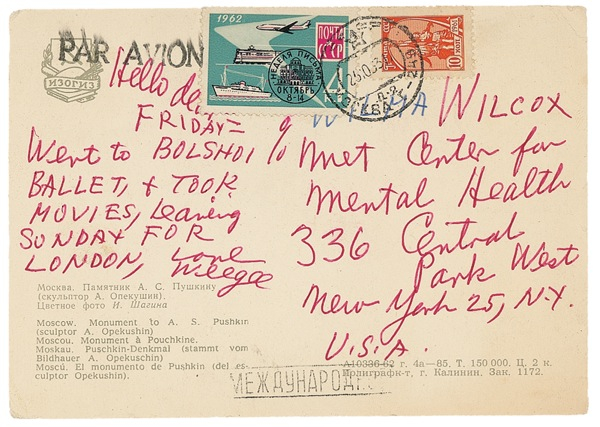 PAR AVION
ИЗОГИЗ
1962
ПОЧТА
СССР
НЕДЕЛЯ ПИСЬМА
ОКТЯБРЬ
8-14
10
МОСКВА
Hello
FRIDAY=
Went to BOLSHOI
BALLET, & TOOK
MOVIES, Leaving
SUNDAY FOR
LONDON, Love
Weegee
WILMA WILCOX
Center for
Mental Health
336 Central
Park West
New York 25, N.Y.
U.S.A.
Москва. Памятник А. С. Пушкину
(скульптор А. Опекушин).
Цветное фото И. Шагина
Moscow. Monument to A. S. Pushkin
(sculptor A. Opekushin)
Moscou. Monument à Pouchkine.
Moskau. Puschkin-Denkmal (stammt vom
Bildhauer A. Opekuschin)
Moscú. El monumento de Pushkin (del es-
cultor Opekushin).
МЕЖДУНАРОД
А10336-62 г. 4а—85. Т. 150 000. Ц. 2 к.
Полиграфк-т, г. Калинин. Зак. 1172.